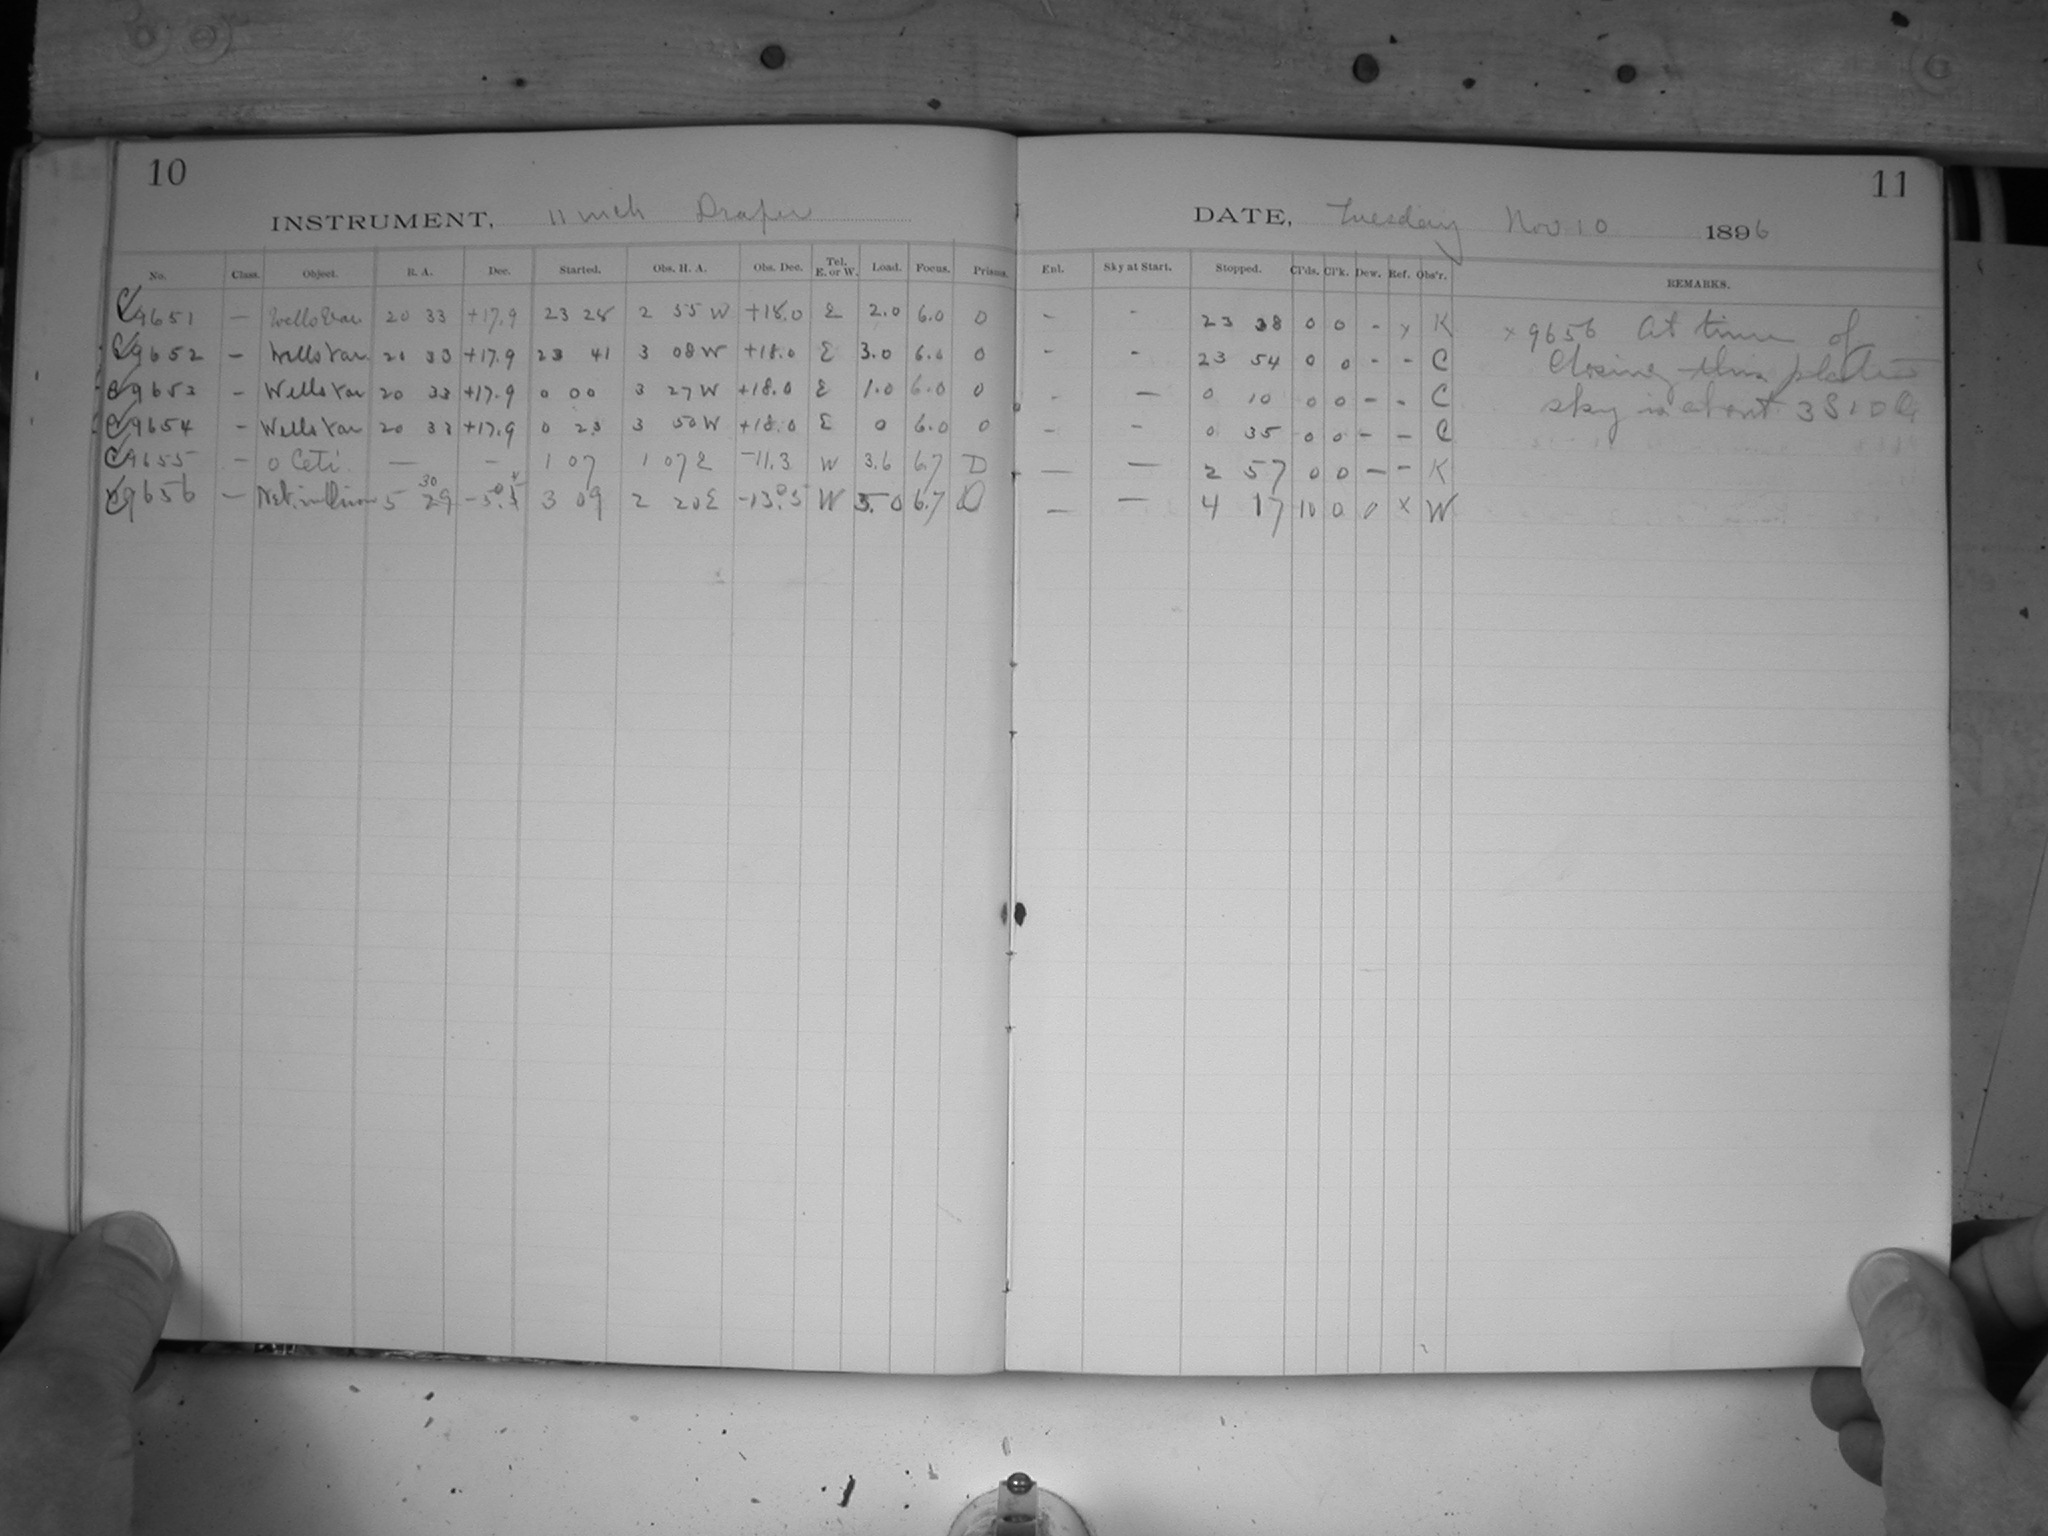 10
INSTRUMENT, 11 inch Draper
No. Class. Object. R. A. Dec. Started. Obs. H. A. Obs. Dec. Tel. E. or W. Load. Focus. Prisms.
C 9651 — Wells Var. 20 33 +17.9 23 28 2 55 W +18.0 E 2.0 6.0 0
C 9652 — Wells Var. 20 33 +17.9 23 41 3 08 W +18.0 E 3.0 6.0 0
C 9653 — Wells Var 20 33 +17.9 0 00 3 27 W +18.0 E 1.0 6.0 0
C 9654 — Wells Var 20 33 +17.9 0 23 3 50 W +18.0 E 0 6.0 0
C 9655 — o Ceti. — — 1 07 1 07 E -11.3 W 3.6 6.7 D
9656 — Neb. in Orion 5 29 30 3 09 2 20 E W 5.0 6.7 D
11
DATE, Tuesday Nov 10 1896
Enl. Sky at Start. Stopped. Cl'ds. Cl'k. Dew. Ref. Obs'r. REMARKS.
— - 23 38 0 0 - x K
- — 23 54 0 0 - - C
- — 0 10 0 0 - - C
— - 0 35 0 0 - - C
— — 2 57 0 0 — - K
— — 4 17 10 0 0 x W
x 9656 At time of
Closing this plate
sky is about